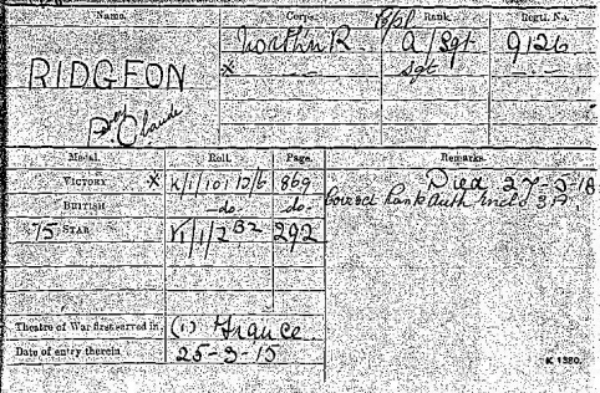 Name. Corps. Rank. Regtl. No.
North'n R A/Sgt 9126
RIDGEON x — — Sgt — . —
P. Claude
Medal. Roll. Page. Remarks.
VICTORY x K/1/101 12/6 869 Died 27-5-18
BRITISH —do— do. Correct Rank Auth
'15 STAR K1/1/2 B2 292
Theatre of War first served in (1) France
Date of entry therein 25-3-15
K 1380.